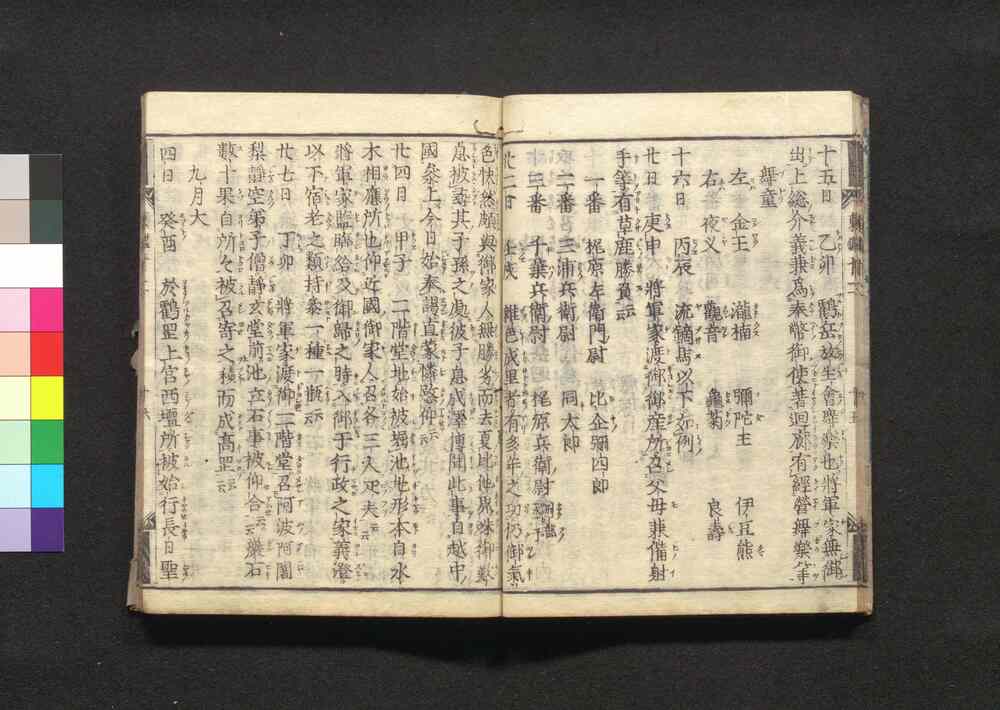 十五日 乙卯 鶴岳放生會舞樂也將軍家無御
出上総介義兼為奉幣御使著廻廊有經營舞樂等
舞童
左 金王 瀧楠 彌陀王 伊豆熊
右 夜叉 觀音 龜菊 良壽
十六日 丙辰 流鏑馬以下如例
廿日 庚申 將軍家渡御御産所召父母兼備射
手等有草鹿勝負云云
一番 梶原左衛門尉 比企彌四郎
二番 三浦兵衛尉 同太郎
三番 千葉兵衛尉 梶原兵衛尉
廿二日 壬戌 雜色成里者有多年之功仍御氣
色快然頗與御家人無勝劣而去夏比他界殊御歎
息被尋其子孫之處彼子息成澤傳聞此事自越中
國參上今日始奉謁直蒙憐愍仰云云
廿四日 甲子 二階堂地始被堀池地形本自水
木相應所也仰近國御家人召各三人疋夫云云
將軍家監臨給及御歸之時入御于行政之家義澄
以下宿老之類持參一種一瓶云云
廿七日 丁卯 將軍家渡御二階堂召阿波阿闍
梨靜空弟子僧靜玄堂前池立石事被仰合云云巖石
數十果自所々被召寄之積而成高罡云云
九月大
四日 癸酉 於鶴罡上宮西壇所被始行長日聖